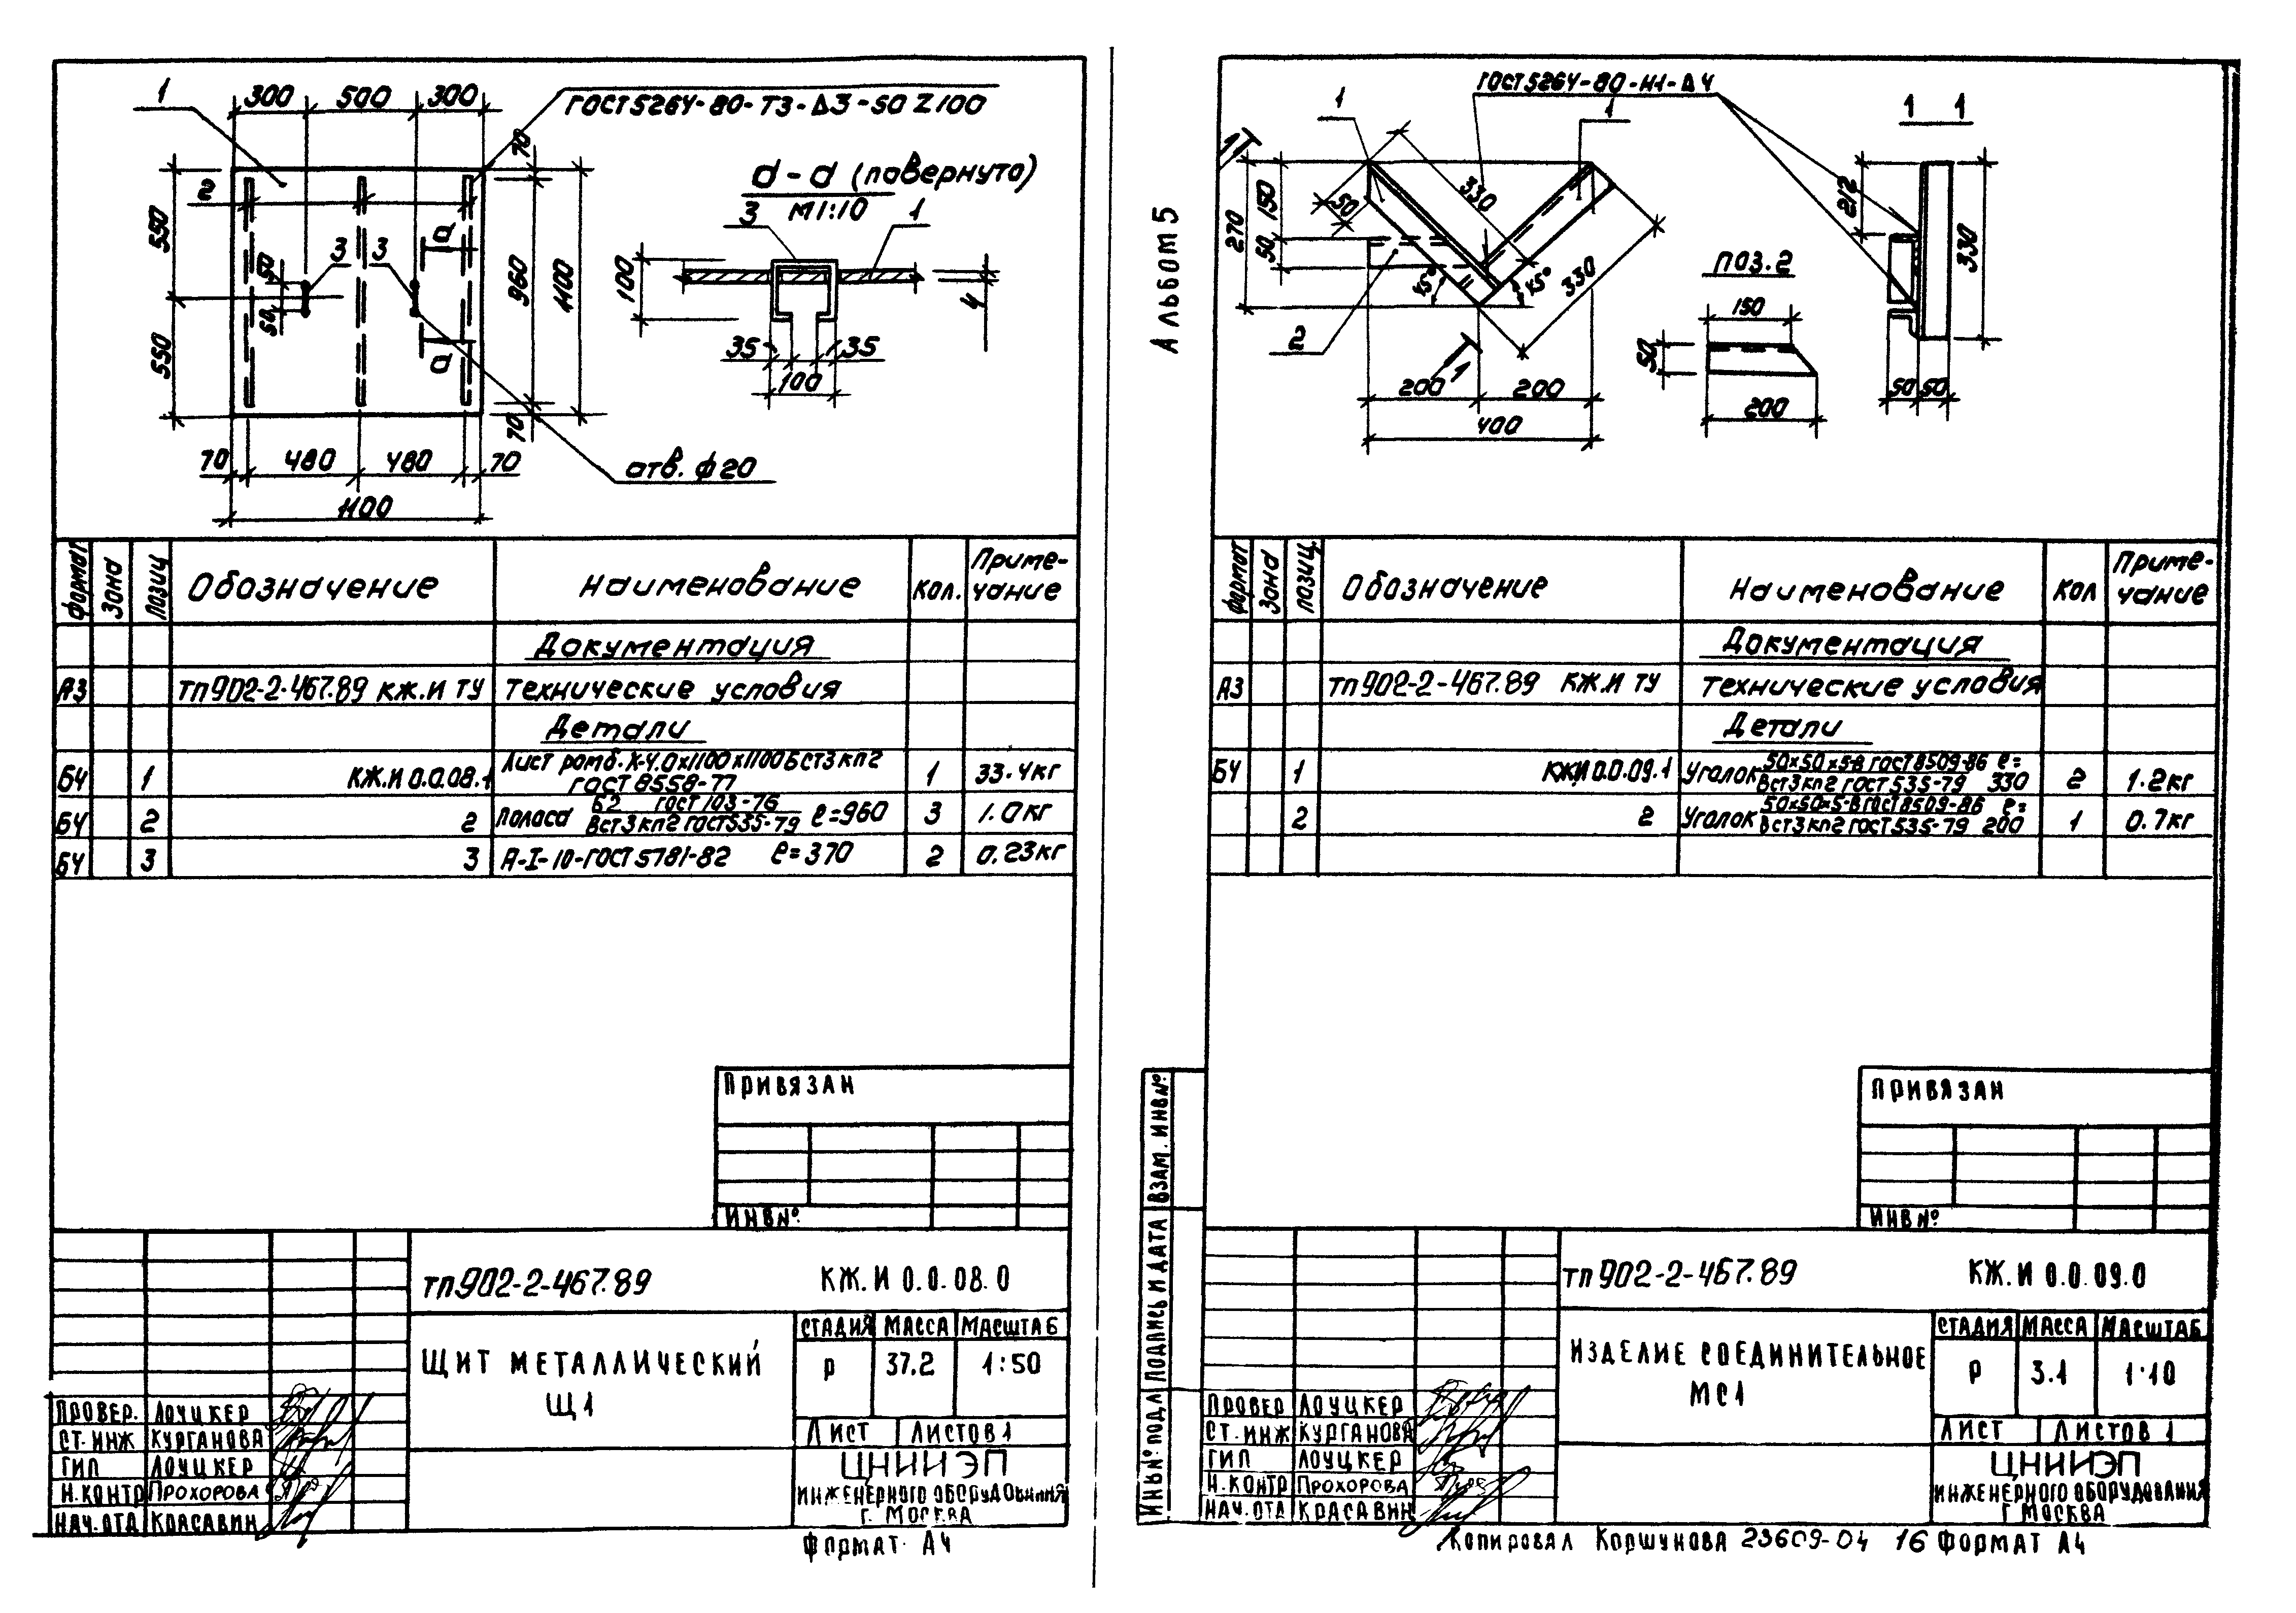 1
300 500 300
ГОСТ 5264-80-Т3-Δ3-50 Z 100
70
2
550
3 3
а
50
50
550
а
960
1100
70
70 480 480 70
1100
отв. ф 20
а-а (повернуто)
М 1:10
3 1
100
4
35 35
100
формат Зона Позиц Обозначение Наименование Кол. Приме-
чание
Документация
А3 ТП 902-2-467.89 КЖ.И ТУ Технические условия
Детали
БЧ 1 КЖ.И 0.0.08.1 Лист ромб. К-4.0х1100х1100 БСт3кп2
ГОСТ 8558-77 1 33.4кг
БЧ 2 2 Полоса Б2 ГОСТ 103-76
ВСт3кп2 ГОСТ 535-79 ℓ=960 3 1.0кг
БЧ 3 3 А-I-10-ГОСТ 5781-82 ℓ=370 2 0.23кг
ПРИВЯЗАН
ИНВ №
ТП 902-2-467.89 КЖ.И 0.0.08.0
ЩИТ МЕТАЛЛИЧЕСКИЙ
Щ1
СТАДИЯ МАССА МАСШТАБ
Р 37.2 1:50
ЛИСТ ЛИСТОВ 1
ПРОВЕР. ЛОУЦКЕР
СТ. ИНЖ КУРГАНОВА
ГИП ЛОУЦКЕР
Н.КОНТР ПРОХОРОВА
НАЧ. ОТД КРАСАВИН
ЦНИИЭП
ИНЖЕНЕРНОГО ОБОРУДОВАНИЯ
Г. МОСКВА
ФОРМАТ А4
АЛЬБОМ 5
ГОСТ 5264-80-Н1-Δ4
1 1
1
270
150
50
50
330
330
45° 45°
2
1
200 200
400
ПОЗ. 2
150
50
200
1 1
212
330
50 50
формат Зона Позиц. Обозначение Наименование Кол Приме-
чание
Документация
А3 ТП 902-2-467.89 КЖ.И ТУ Технические условия
Детали
БЧ 1 КЖИ 0.0.09.1 Уголок 50х50х5-В ГОСТ 8509-86 ℓ=
ВСт3кп2 ГОСТ 535-79 330 2 1.2кг
2 2 Уголок 50х50х5-В ГОСТ 8509-86 ℓ=
ВСт3кп2 ГОСТ 535-79 200 1 0.7кг
ПРИВЯЗАН
ИНВ №
ИНВ № ПОДЛ ПОДПИСЬ И ДАТА ВЗАМ. ИНВ №
ТП 902-2-467.89 КЖ.И 0.0.09.0
ИЗДЕЛИЕ СОЕДИНИТЕЛЬНОЕ
МС1
СТАДИЯ МАССА МАСШТАБ
Р 3.1 1:10
ЛИСТ ЛИСТОВ 1
ПРОВЕР ЛОУЦКЕР
СТ. ИНЖ КУРГАНОВА
ГИП ЛОУЦКЕР
Н.КОНТР ПРОХОРОВА
НАЧ. ОТД КРАСАВИН
ЦНИИЭП
ИНЖЕНЕРНОГО ОБОРУДОВАНИЯ
Г МОСКВА
Копировал Коршунова 23609-04 16 ФОРМАТ А4